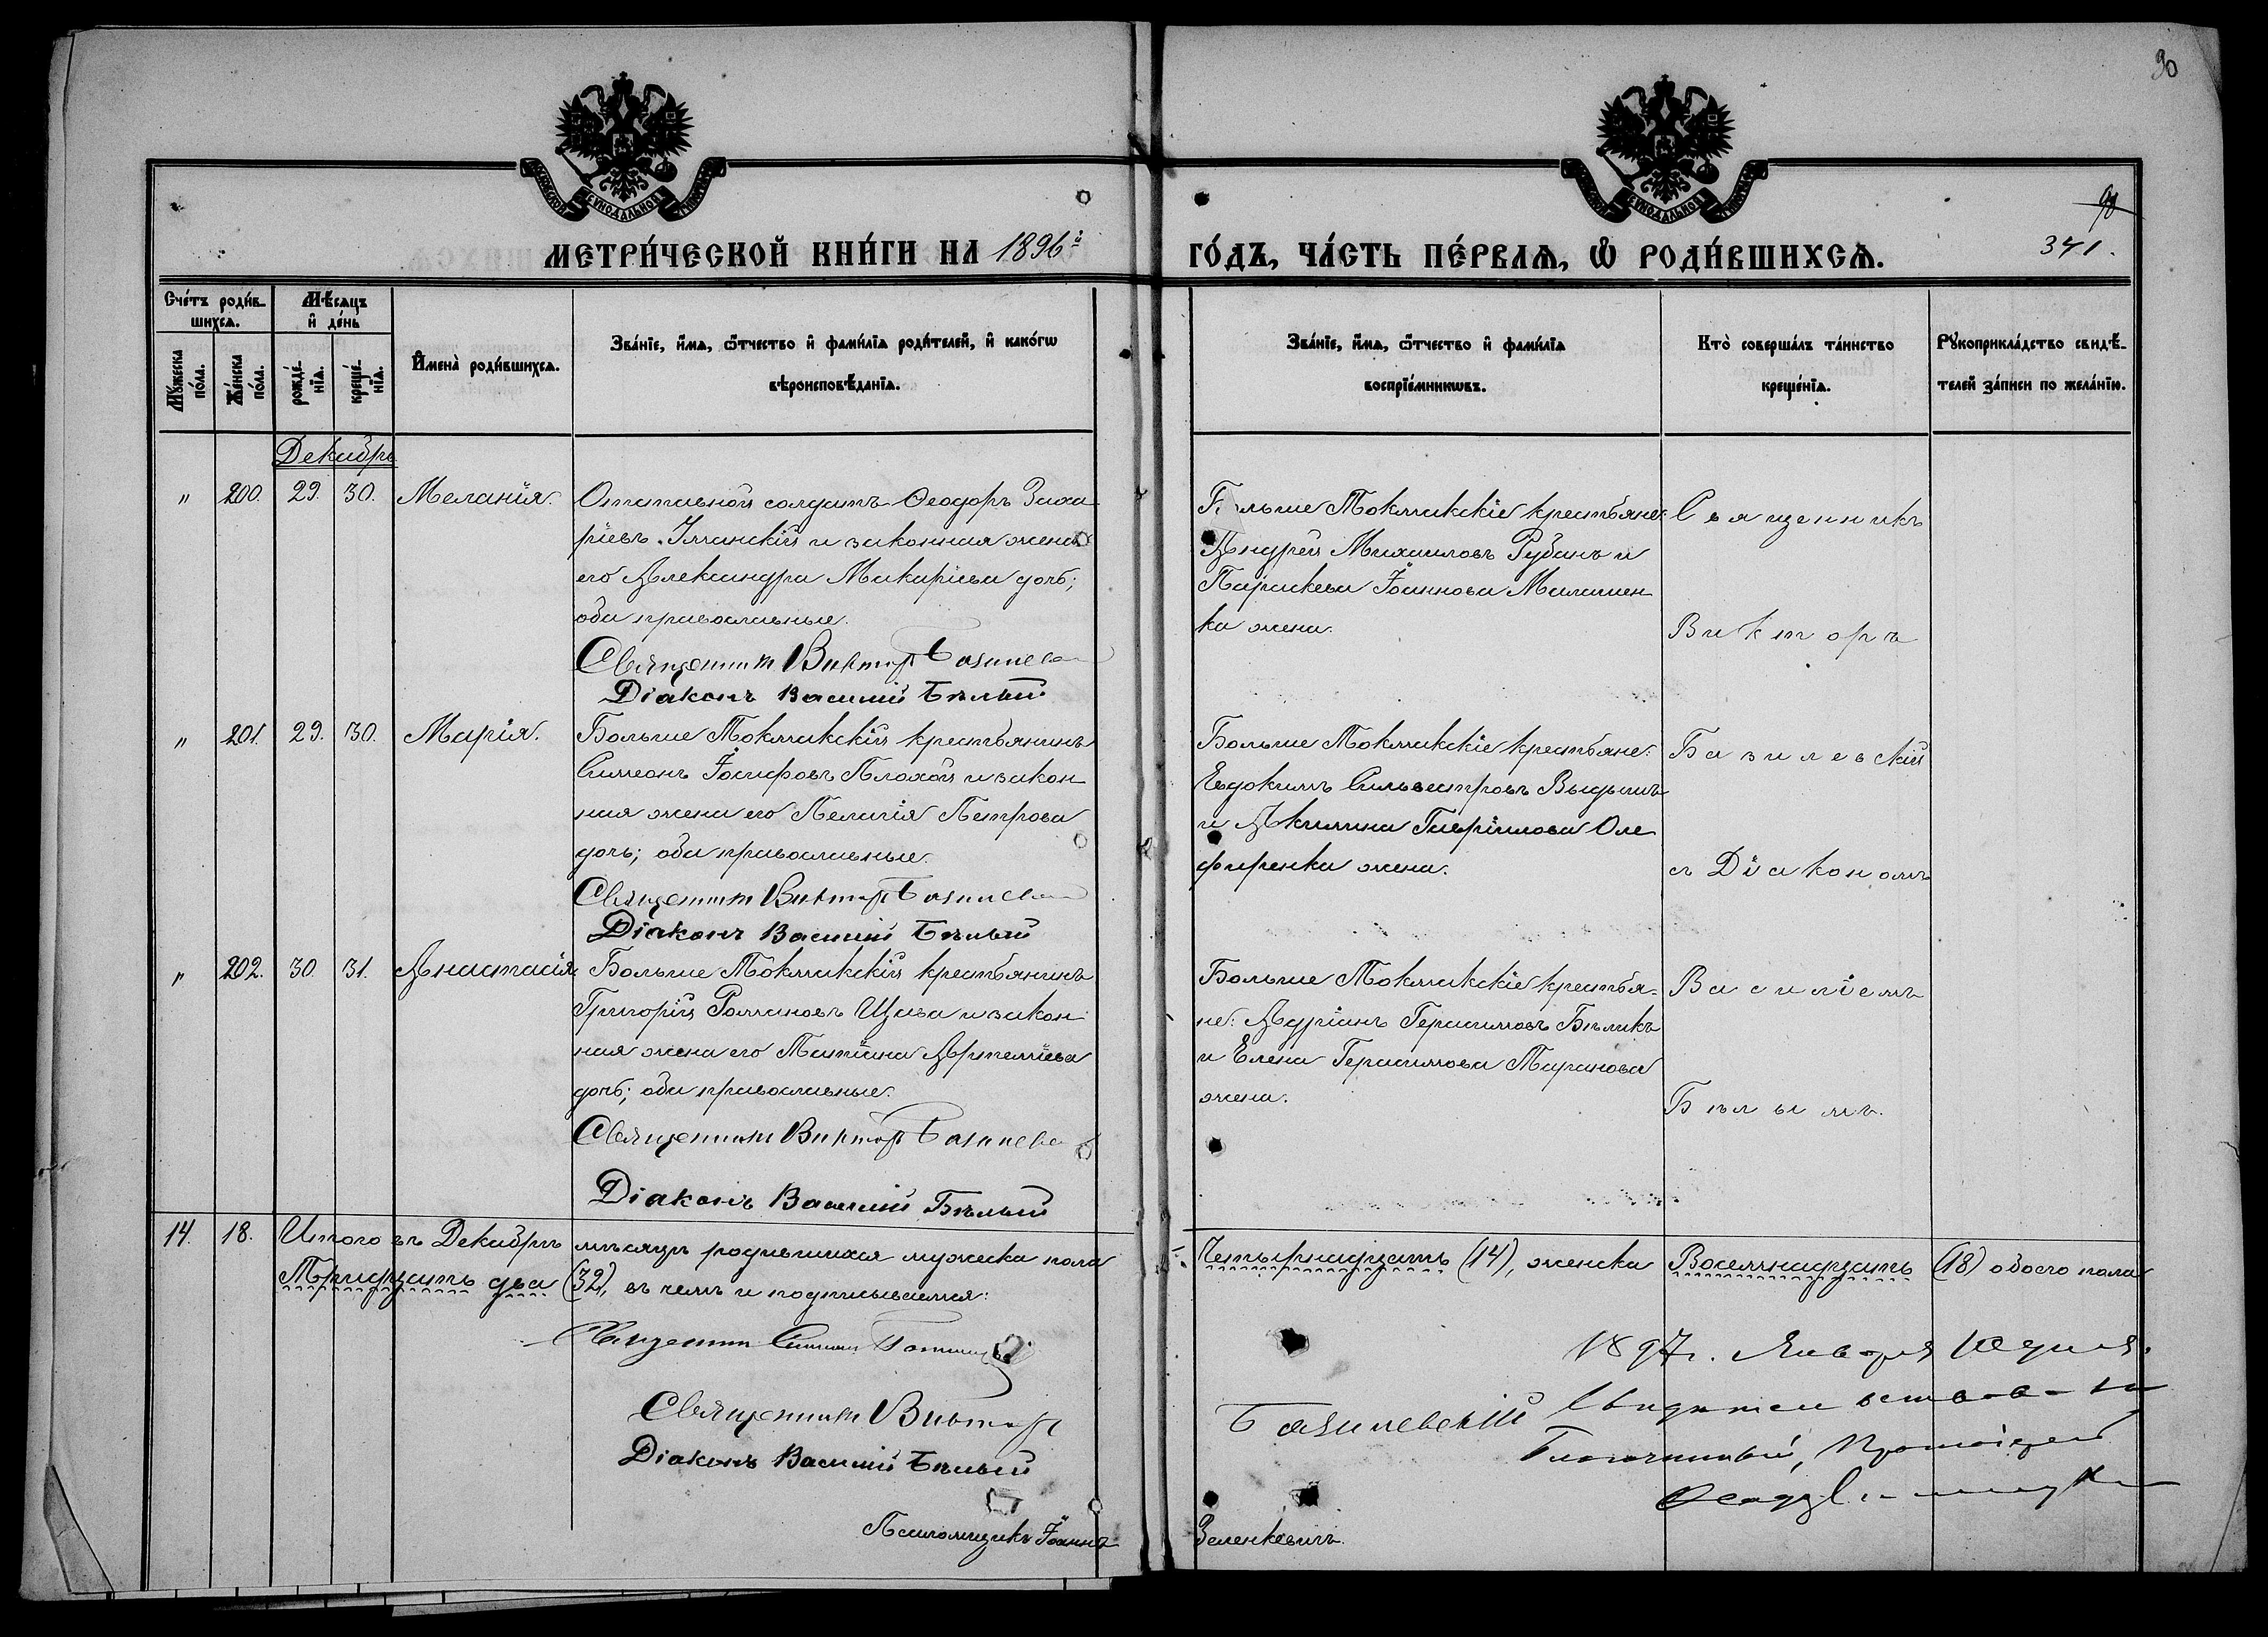 90
90
341.
МЕТРИ́ЧЕСКОЙ КНИ́ГИ НА 1896й
ГО́ДЪ, ЧА́СТЬ ПЕ́РВАѦ, Ѡ РОДИ́ВШИХСѦ.
Сче́тъ роди́в-
шихсѧ.
Мꙋ́жеска по́ла.
Же́нска по́ла.
Мѣ́сѧцъ и де́нь
рожде́-нїѧ.
креще́-нїѧ.
И҆мена̀ роди́вшихсѧ.
Зва́нїе, и҆́мѧ, ѻ҆́тчество и҆ фами́лїѧ роди́телей, и҆ како́гѡ
вѣроисповѣ́данїѧ.
Зва́нїе, и҆́мѧ, ѻ҆́тчество и҆ фами́лїѧ
воспрїе́мникѡвъ.
Кто̀ соверша́лъ та́инство
креще́нїѧ.
Рꙋкоприкла́дство свидѣ́-
телей за́писи по жела́нїю.
Декабрь
" 200. 29. 30. Меланія.
Отставной солдатъ Ѳеодоръ Заха
ріевъ Иманскій и законная жена
его Александра Макаріева дочь;
оба православные.
Священникъ Викторъ Базилев
Діаконъ Василій Бѣлый
Больше Токмакскіе крестьяне:
Андрей Михаиловъ Рубанъ и
Параскева Іоаннова Маламен
ка жена.
Священникъ
Викторъ
" 201. 29. 30. Марія.
Больше Токмакскій крестьянинъ
Симеонъ Іосифовъ Плохой и закон
ная жена его Пелагія Петрова
дочь; оба православные.
Священникъ Викторъ Базилев
Діаконъ Василій Бѣлый
Больше Токмакскіе крестьяне:
Евдокимъ Сильвестровъ Выдышъ
и Акилина Гавріилова Оле
фиренка жена.
Базилевскій
съ Діакономъ
" 202. 30. 31. Анастасія
Больше Токмакскій крестьянинъ
Григорій Романовъ Щава и закон
ная жена его Татіана Артеміева
дочь; оба православные.
Священникъ Викторъ Базилев
Діаконъ Василій Бѣлый
Больше Токмакскіе крестья-
не: Адріанъ Герасимовъ Бѣликъ
и Елена Герасимова Таранова
жена.
Василіемъ
Бѣлымъ.
14. 18. Итого въ Декабрѣ мѣсяцѣ родившихся мужеска пола
Четырнадцать (14), женска Восемнадцать (18) обоего пола
Тридцать два (32), въ чемъ и подписываемся:
Священник
Священникъ Викторъ
Базилевскій
Діаконъ Василій Бѣлый
Псаломщикъ Іоаннъ
Зеленкевичъ.
1897 г. Января 10 дня.
Свидетельствовалъ
Благочинный, Протоіерей